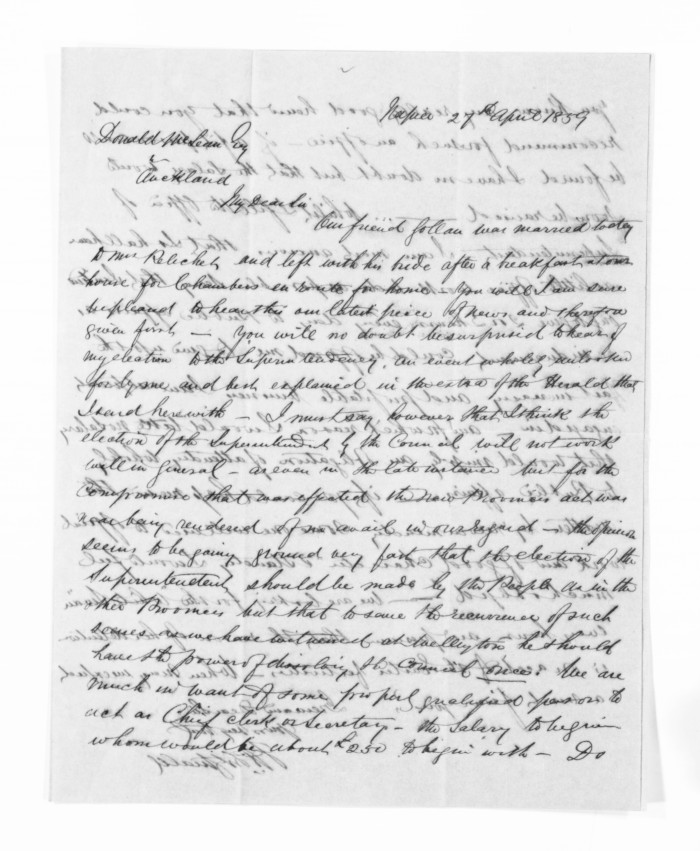 Napier 27th April 1859
Donald McLean Esq
Auckland
My Dear Sir
Our friend Gollan was married today
to Miss and left with his bride after a breakfast at our
house for Chambers en route for home – You will I am sure
be pleased to hear this our latest peice of news and therefore
given first – You will no doubt be surprised to hear of
my election to the Superintendency, an event wholly unlooked
for by me and best explained in the extra of the Herald that
I send herewith – I must say, however that I think the
election of the Superintendent by the Council will not work
well in general – as even in the late instance but for the
compromise that was effected the New Provinces act was
near being rendered of no avail in our regard – the opinion
seems to be gaining ground very fast that the election of the
Superintendent should be made by the People as in the
other Provinces but that to save the recurrence of such
scenes as we have witnessed at Wellington he should
have the power of dissolving the Council once. We are
much in want of some proper qualified person to
act as Chief clerk or Secretary – the Salary to be given
whom would be about £250 to begin with – Do